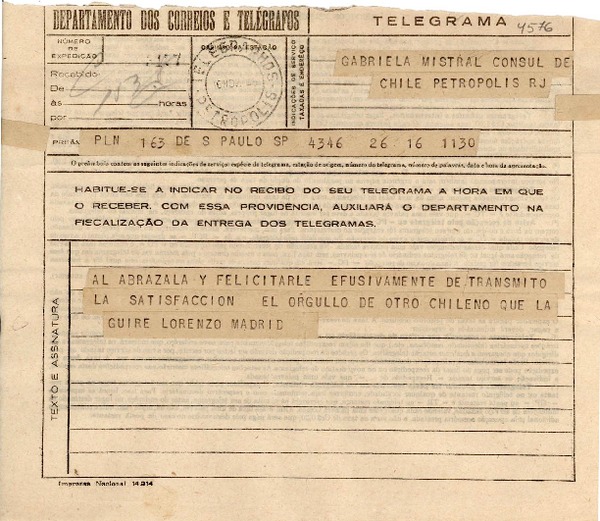 DEPARTAMENTO DOS CORREIOS E TELÉGRAFOS
TELEGRAMA
4576
NÚMERO DE EXPEDIÇÃO
Recebido
De
às horas
por
CARIMBO DA ESTAÇÃO
PETROPOLIS
INDICAÇÕES DE SERVIÇO TAXADAS E ENDERÊÇO
GABRIELA MISTRAL CONSUL DE
CHILE PETROPOLIS RJ
PREÂM
PLN 163 DE S PAULO SP 4346 26 16 1130
O preâmbulo contém as seguintes indicações de serviço: espécie do telegrama, estação de origem, número do telegrama, número de palavras, data e hora da apresentação.
HABITUE-SE A INDICAR NO RECIBO DO SEU TELEGRAMA A HORA EM QUE
O RECEBER. COM ESSA PROVIDÊNCIA, AUXILIARÁ O DEPARTAMENTO NA
FISCALIZAÇÃO DA ENTREGA DOS TELEGRAMAS.
TEXTO E ASSINATURA
AL ABRAZALA Y FELICITARLE EFUSIVAMENTE DE TRANSMITO
LA SATISFACCION EL ORGULLO DE OTRO CHILENO QUE LA
GUIRE LORENZO MADRID
Imprensa Nacional 14.214